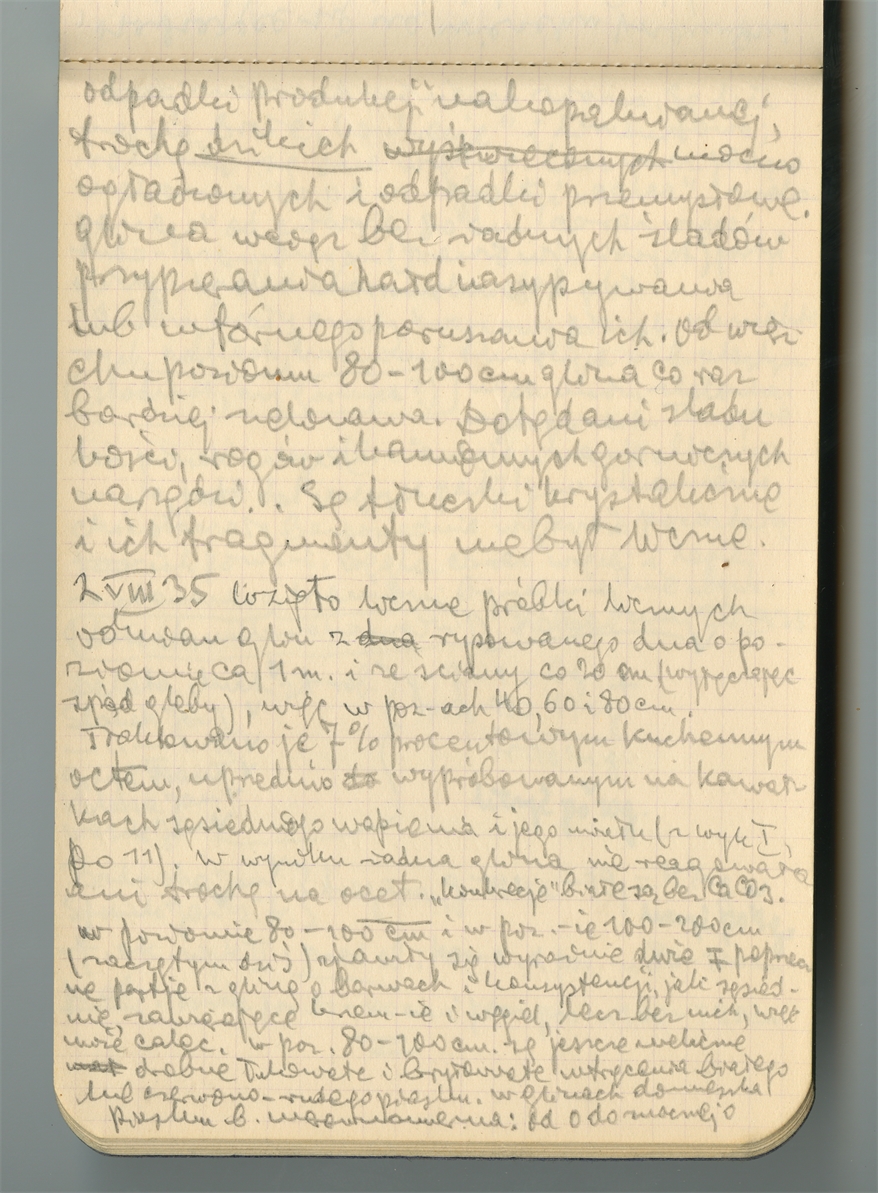 odpadki produkcji nakopalnianej,
trochę dzikich wyświeconych mocno
ogładzonych i odpadki przemysłowe.
glina wciąż bez żadnych śladów
przypierania hałd nasypywania
lub wtórnego poruszania ich. Od wierz
chu poziomu 80-100 cm glina co raz
bardziej zielonawa. Dotąd ani śladu
kości, rogów i kamiennych górniczych
narzędzi.. Są tłuczki krystaliczne
i ich fragmenty niebyt liczne.
2 VIII 35 Wzięto liczne próbki licznych
odmian glin z dna rypowanego dna o po-
ziomie ca 1 m. i ze ściany co 20 cm (wyłączając
spód gleby), więc w poz-ach 40, 60 i 80 cm.
Traktowano je 7% procentowym kuchennym
octem, uprzednio to wypróbowanym na kawał-
kach sąsiedniego wapienia i jego miału (z wyk I,
po 11). W wyniku żadna glina nie reagowała
ani trochę na ocet. „konkrecje" białe są bez CaCO3.
w poziomie 80-100 cm i w poz.-ie 100-200 cm
(zaczętym dziś) zjawiły się wyraźnie dwie I poprzecz
ne partje z gliną o barwach i konsystencji, jak sąsied-
nie, zawierające krzem-ie i węgiel, lecz bez nich, więc
może całec. w poz. 80-100 cm. są jeszcze nieliczne
drobne i bryłowate wtrącenia białego
lub czerwono-rudego piasku. w glinach domieszka
piasku b. nierównomierna: od 0 do mocnej